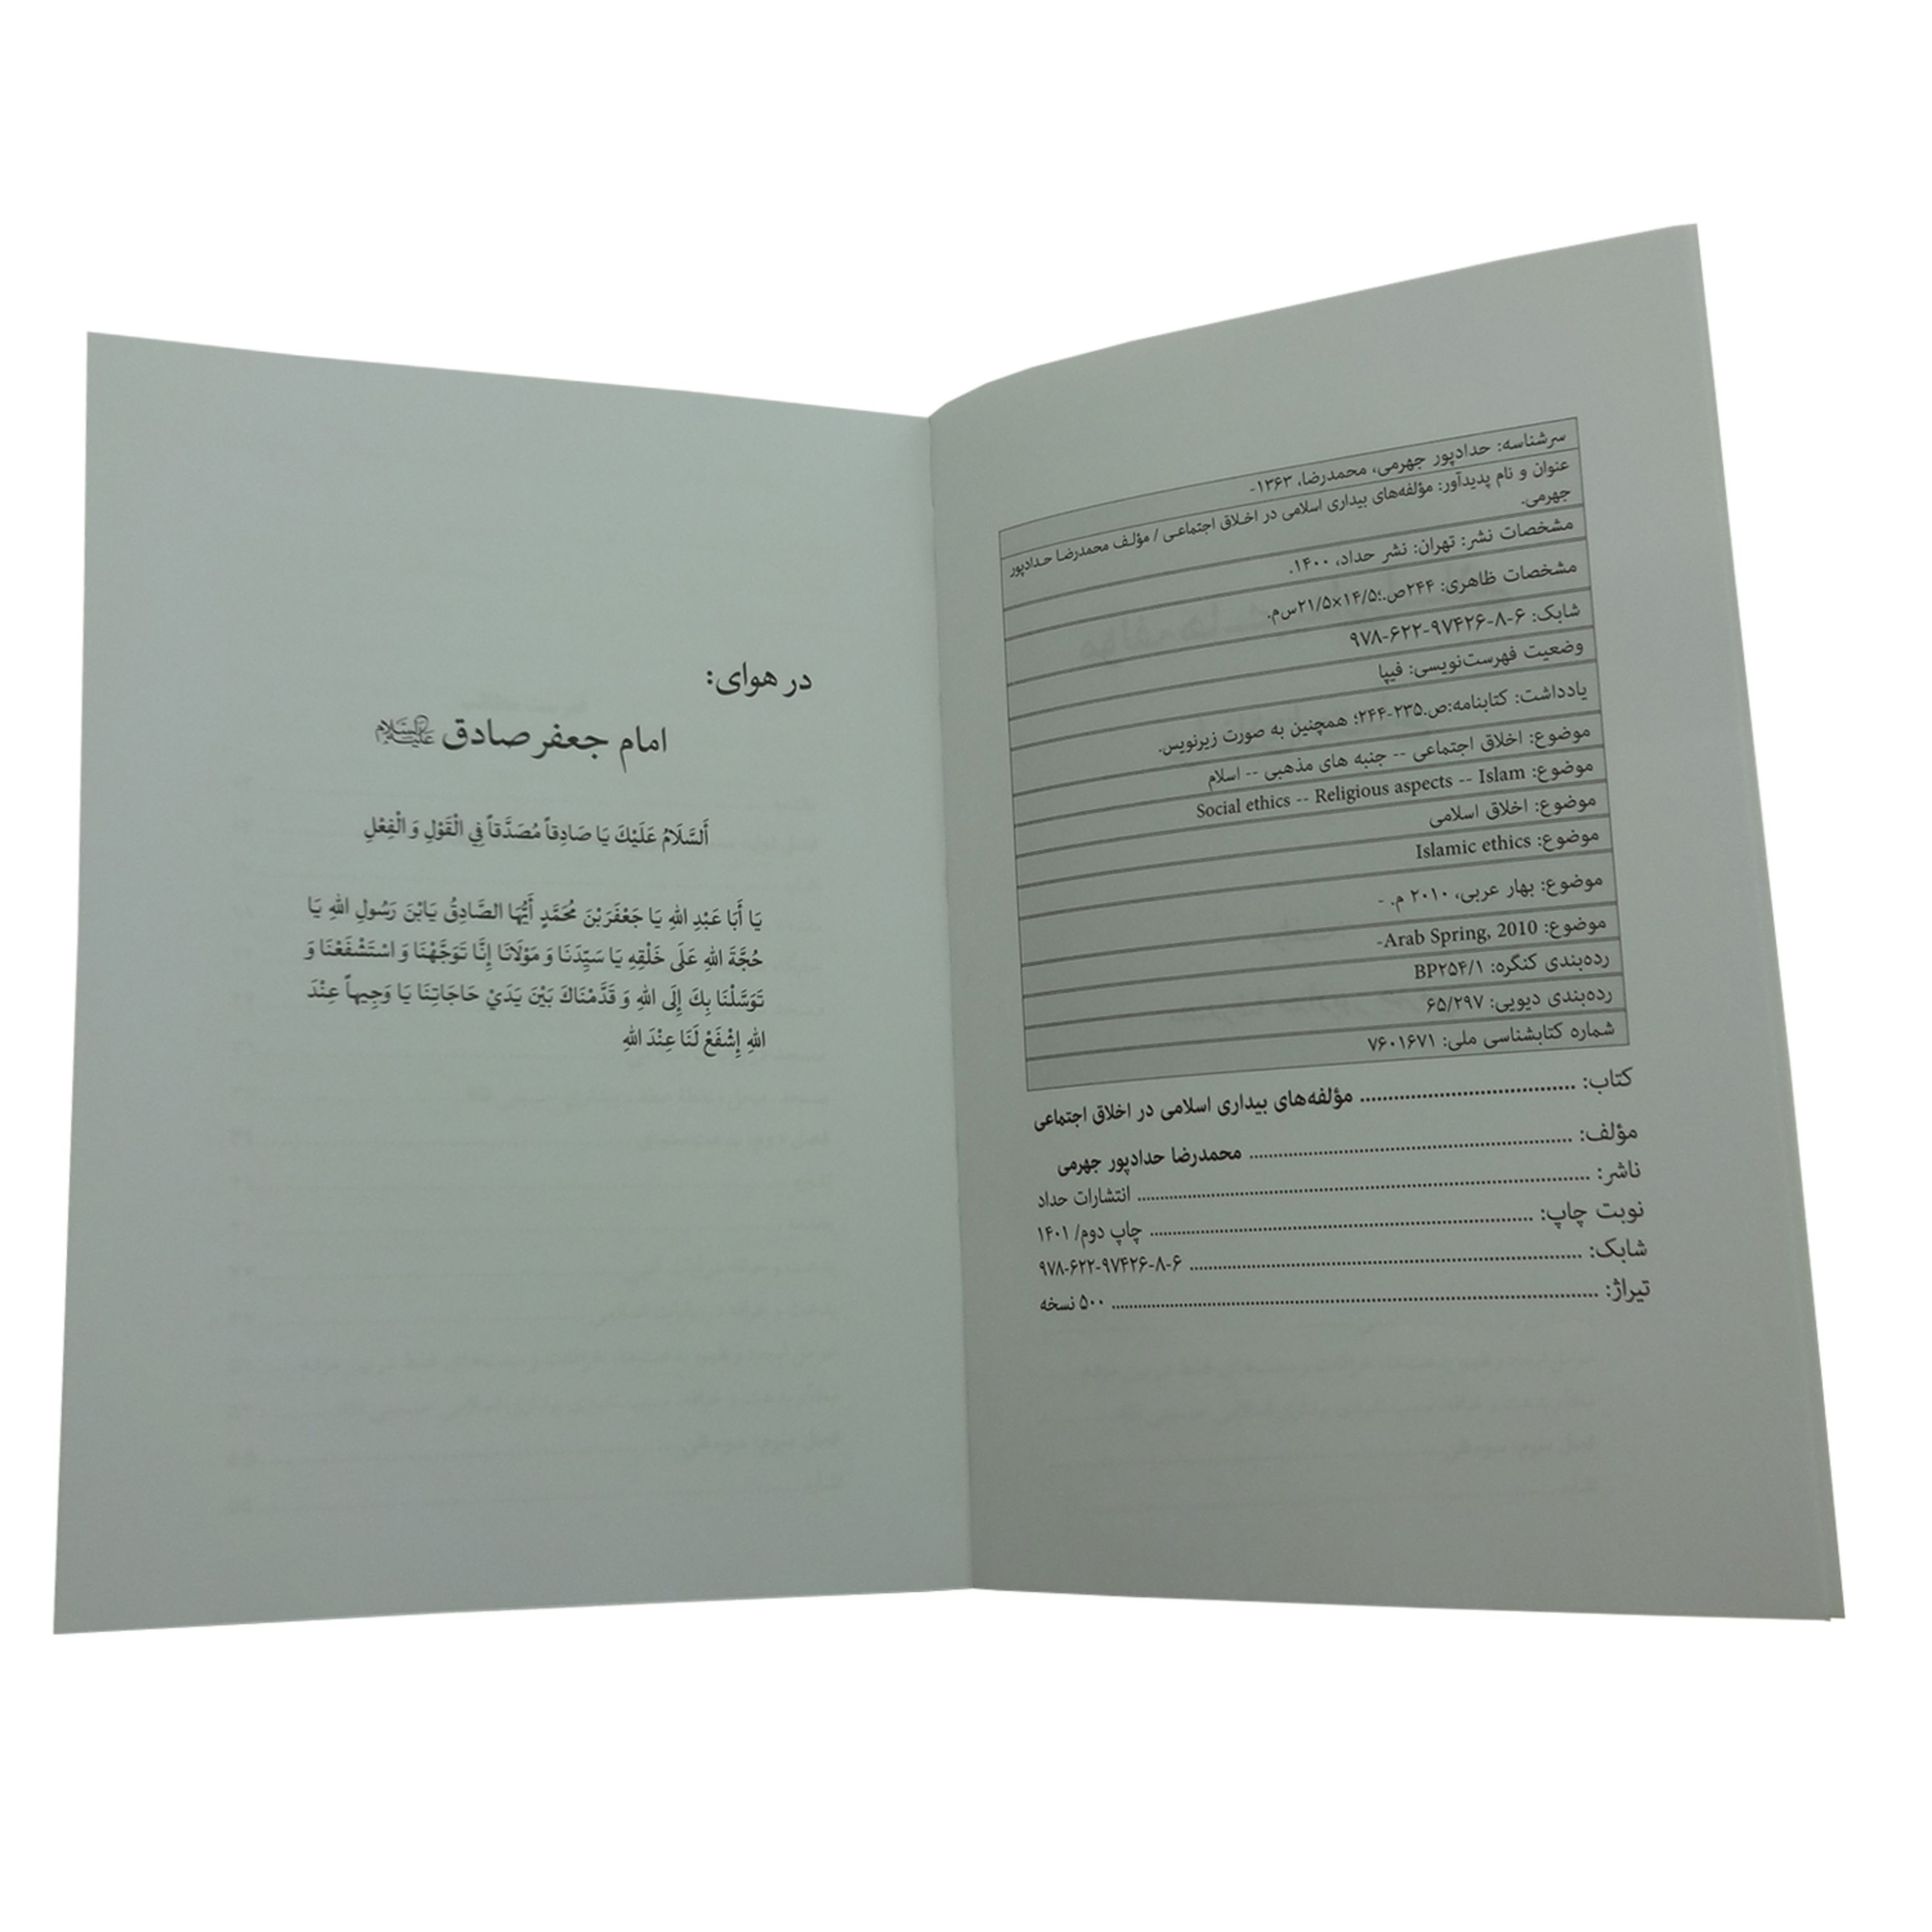 سرشناسه: حدادپور جهرمی، محمدرضا، ۱۳۶۳-
عنوان و نام پدیدآور: مؤلفه‌های بیداری اسلامی در اخلاق اجتماعی / مؤلف محمدرضا حدادپور
جهرمی.
مشخصات نشر: تهران: نشر حداد، ۱۴۰۰.
مشخصات ظاهری: ۲۴۴ص.؛۱۴/۵×۲۱/۵س‌م.
شابک: ۶-۸-۹۷۴۲۶-۶۲۲-۹۷۸
وضعیت فهرست‌نویسی: فیپا
یادداشت: کتابنامه:ص.۲۳۵-۲۴۴؛ همچنین به صورت زیرنویس.
موضوع: اخلاق اجتماعی -- جنبه های مذهبی -- اسلام
موضوع: Social ethics -- Religious aspects -- Islam
موضوع: اخلاق اسلامی
موضوع: Islamic ethics
موضوع: بهار عربی، ۲۰۱۰ م. -
موضوع: Arab Spring, 2010-
رده‌بندی کنگره: BP۲۵۴/۱
رده‌بندی دیویی: ۶۵/۲۹۷
شماره کتابشناسی ملی: ۷۶۰۱۶۷۱
کتاب: ........ مؤلفه‌های بیداری اسلامی در اخلاق اجتماعی
مؤلف: ........ محمدرضا حدادپور جهرمی
ناشر: ........ انتشارات حداد
نوبت چاپ: ........ چاپ دوم/ ۱۴۰۱
شابک: ........ ۶-۸-۹۷۴۲۶-۶۲۲-۹۷۸
تیراژ: ........ ۵۰۰ نسخه
در هوای:
امام جعفر صادق علیه‌السلام
أَلسَّلَامُ عَلَيْكَ يَا صَادِقاً مُصَدَّقاً فِي الْقَوْلِ وَ الْفِعْلِ
يَا أَبَا عَبْدِ اللهِ يَا جَعْفَرَ بْنَ مُحَمَّدٍ أَيُّهَا الصَّادِقُ يَابْنَ رَسُولِ اللهِ يَا
حُجَّةَ اللهِ عَلَى خَلْقِهِ يَا سَيِّدَنَا وَ مَوْلَانَا إِنَّا تَوَجَّهْنَا وَ اسْتَشْفَعْنَا وَ
تَوَسَّلْنَا بِكَ إِلَى اللهِ وَ قَدَّمْنَاكَ بَيْنَ يَدَيْ حَاجَاتِنَا يَا وَجِيهاً عِنْدَ
اللهِ إِشْفَعْ لَنَا عِنْدَ اللهِ